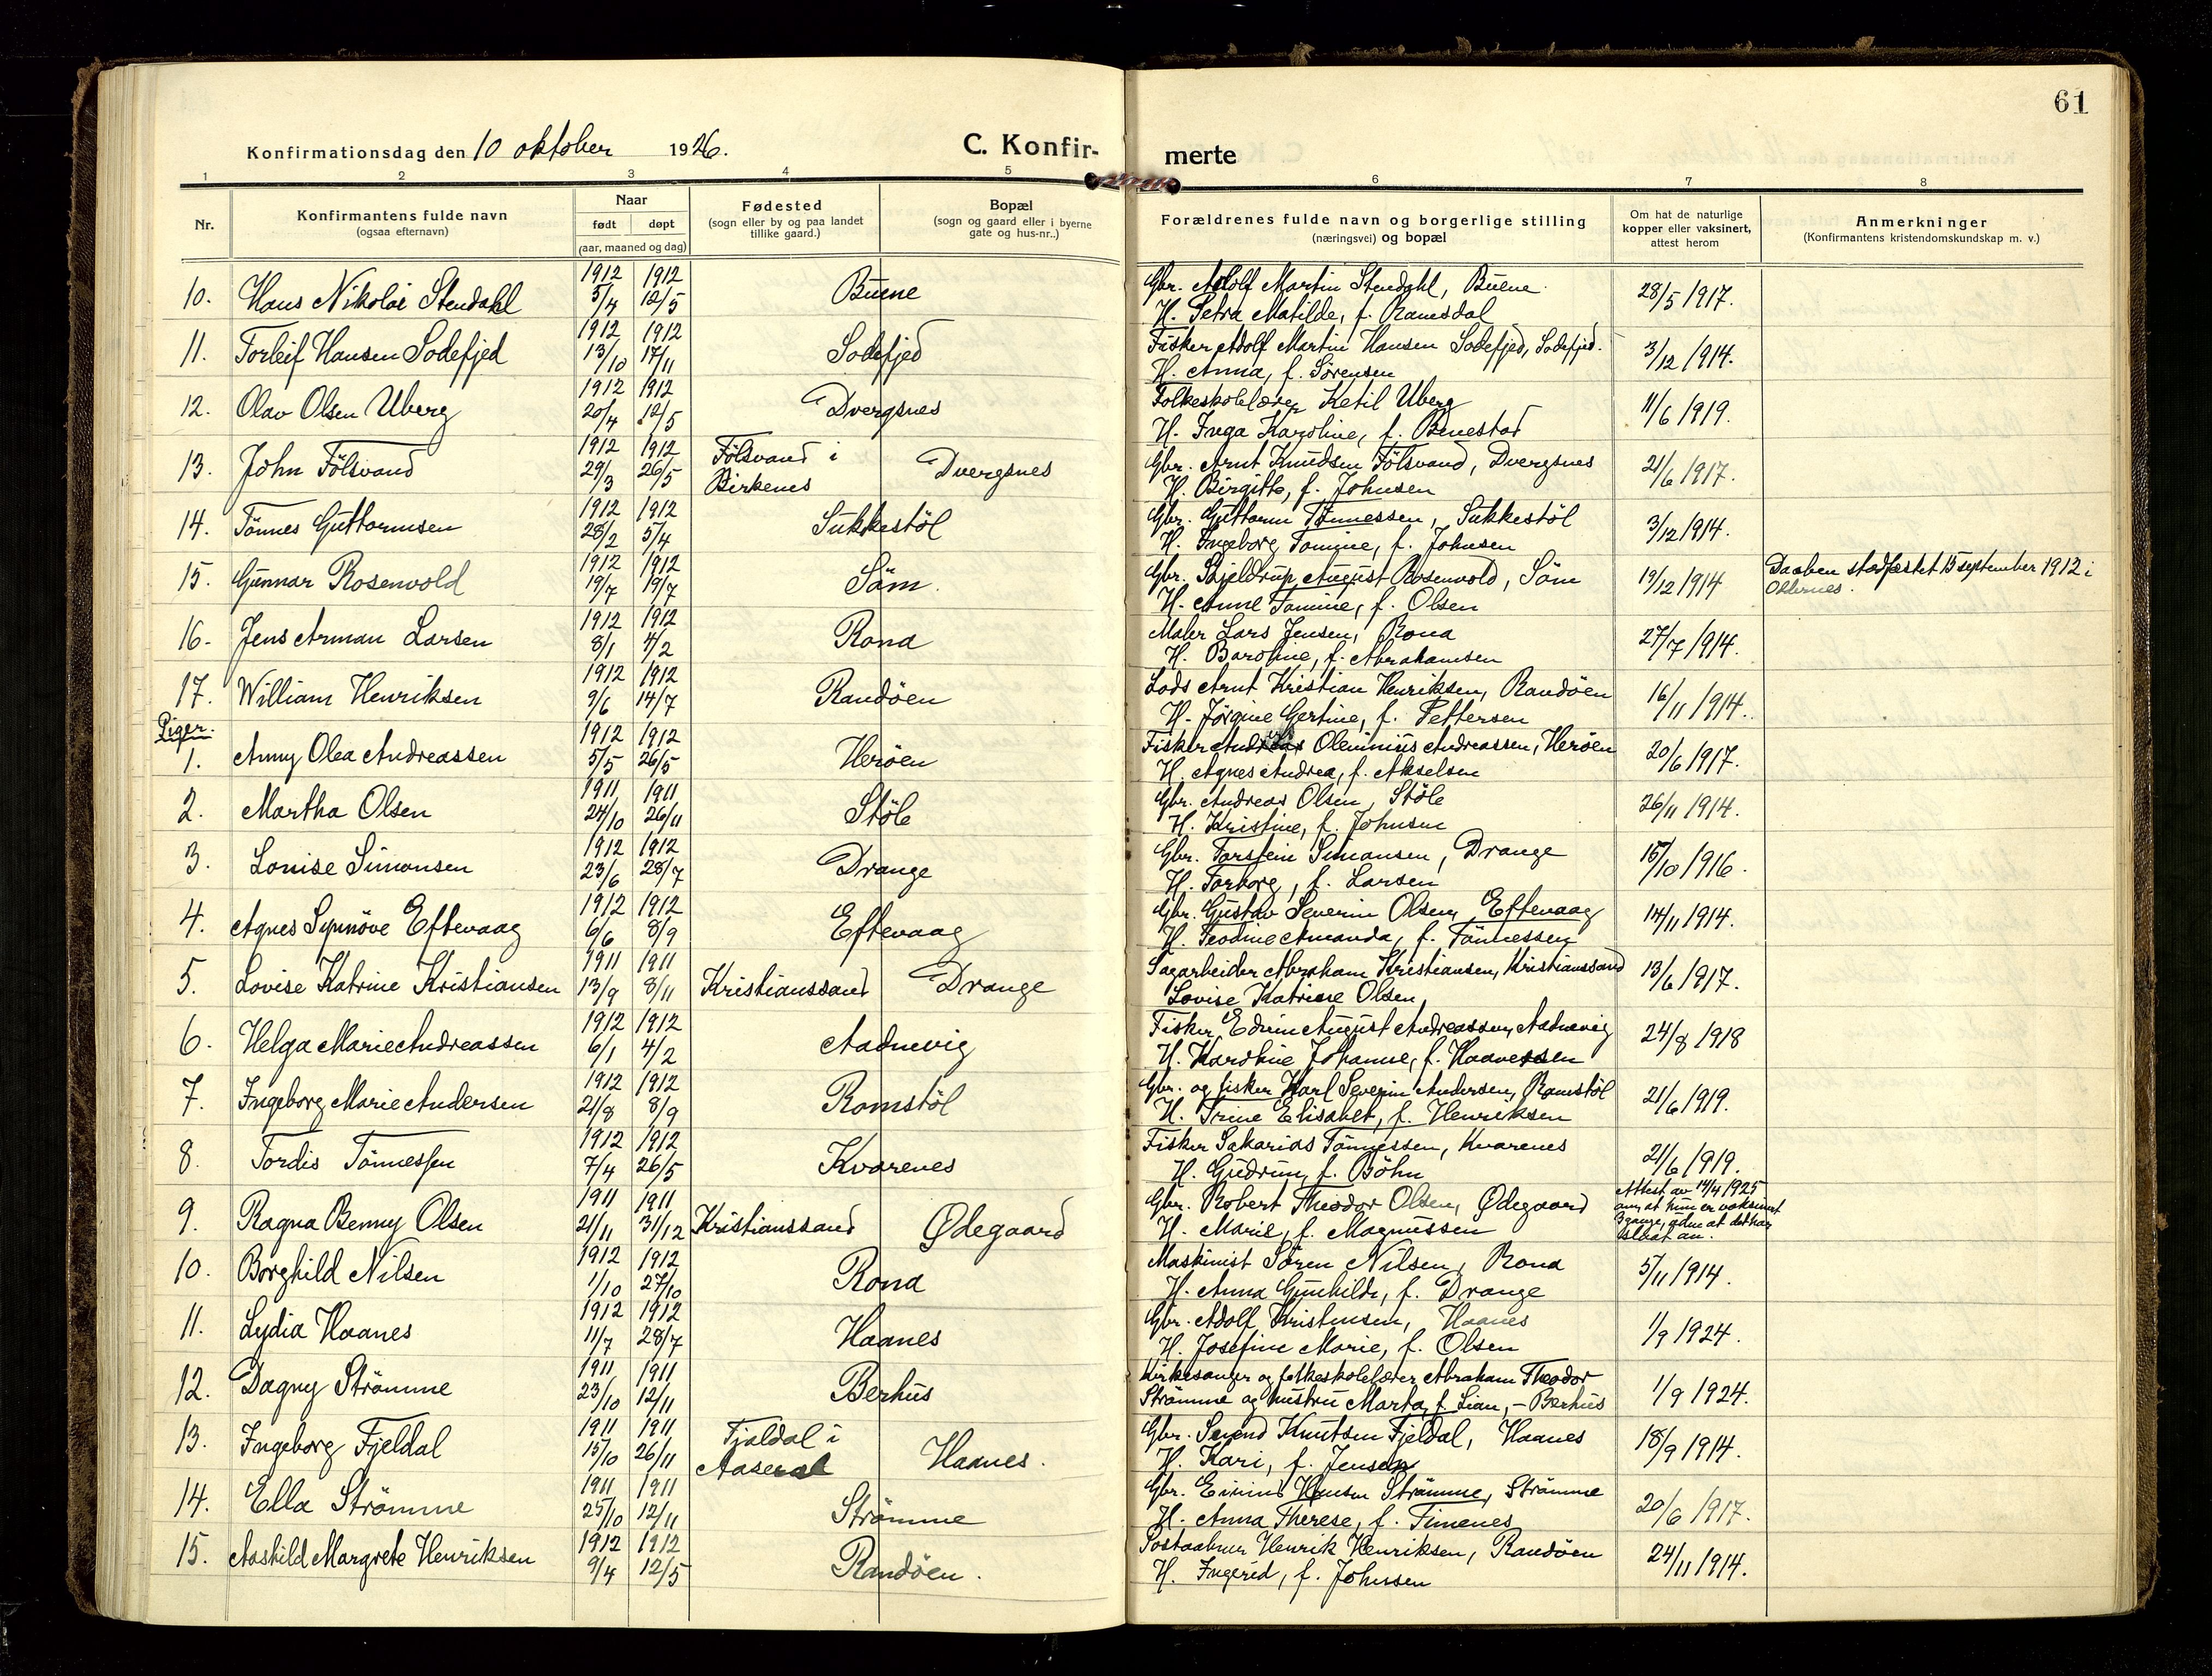 61
Konfirmationsdag den 10 oktober 1926.
C. Konfir-
merte
1 2 3 4 5 6 7 8
Nr.
Konfirmantens fulde navn
(ogsaa efternavn)
Naar
født døpt
(aar, maaned og dag)
Fødested
(sogn eller by og paa landet
tillike gaard.)
Bopæl
(sogn og gaard eller i byerne
gate og hus-nr..)
Forældrenes fulde navn og borgerlige stilling
(næringsvei) og bopæl
Om hat de naturlige
kopper eller vaksinert,
attest herom
Anmerkninger
(Konfirmantens kristendomskundskap m. v.)
10. Hans Nikolai Stendahl 1912 5/4 1912 12/5 Buene
Gbr. Adolf Martin Stendahl, Buene.
H. Petra Matilde, f. Ramsdal
28/5 1917.
11. Torleif Hansen Sodefjed 1912 13/10 1912 17/11 Sodefjed
Fisker Adolf Martin Hansen Sodefjed, Sodefjed.
H. Anna, f. Sørensen
3/12 1914.
12. Olav Olsen Uberg 1912 20/4 1912 12/5 Dvergsnes
Folkeskolelærer Ketil Uberg
H. Inga Karoline, f. Benestad
11/6 1919.
13. John Fölsvand 1912 29/3 1912 26/5 Fölsvand i
Birkenes
Dvergsnes
Gbr. Arnt Knudsen Fölsvand, Dvergsnes
H. Birgitte, f. Johnsen
21/6 1917.
14. Tönnes Guttormsen 1912 28/2 1912 5/4 Sukkestöl
Gbr. Guttorm Tönnessen, Sukkestöl
H. Ingeborg Tomine, f. Johnsen
3/12 1914.
15. Gunnar Rosenvold 1912 19/7 1912 19/7 Söm.
Gbr. Skjeldrup August Rosenvold, Söm
H. Anne Tomine, f. Olsen
19/12 1914
Daaben stadfæstet 15 september 1912 i
Oddernes.
16. Jens Arman Larsen 1912 8/1 1912 4/2 Rona
Maler Lars Jensen, Rona
H. Baroline, f. Abrahamsen
27/7 1914.
17. William Henriksen 1912 9/6 1912 14/7 Randöen
Lods Arnt Kristian Henriksen, Randöen
H. Jörgine Gertine, f. Pettersen
16/11 1914.
Piger.
1. Anny Olea Andreassen 1912 5/5 1912 26/5 Heröen
Fisker Andreas Oleinius Andreassen, Heröen
H. Agnes Andrea, f. Akselsen
20/6 1917.
2. Martha Olsen 1911 24/10 1911 26/11 Stöle
Gbr. Andreas Olsen, Stöle
H. Kristine, f. Johnsen
26/11 1914.
3. Lovise Simonsen 1912 23/6 1912 28/7 Drange
Gbr. Torstein Simonsen, Drange
H. Torborg, f. Larsen
15/10 1916.
4. Agnes Synnöve Eftevaag 1912 6/6 1912 8/9 Eftevaag
Gbr. Gustav Severin Olsen, Eftevaag
H. Teodine Amanda, f. Tönnessen
14/11 1914.
5. Lovise Katrine Kristiansen 1911 13/9 1911 8/11 Kristianssand Drange
Sagarbeider Abraham Kristiansen, Kristianssand
Lovise Katrine Olsen
13/6 1917.
6. Helga Marie Andreassen 1912 6/1 1912 4/2 Aadnevig
Fisker Edvin August Andreassen, Aadnevig
H. Karoline Johanne, f. Haavessen
24/8 1918
7. Ingeborg Marie Andersen 1912 21/8 1912 8/9 Romstöl
Gbr. og fisker Karl Severin Andersen, Romstöl
H. Trine Elisabet, f. Henriksen
21/6 1919.
8. Tordis Tönnessen 1912 7/4 1912 26/5 Kvarenes
Fisker Sakarias Tönnessen, Kvarenes
H. Gudrun, f. Böhn
21/6 1919.
9. Ragna Benny Olsen 1911 21/11 1911 31/12 Kristianssand Ødegaard
Gbr. Robert Theodor Olsen, Ødegaard
H. Marie, f. Magnussen
Attest av 14/4 1925
om, at hun er vaksinert
3 gange, uten at det har
slaat an.
10. Borghild Nilsen 1912 1/10 1912 27/10 Rona
Maskinist Sören Nilsen, Rona
H. Anna Gunhilde, f. Drange
5/11 1914.
11. Lydia Haanes 1912 11/7 1912 28/7 Haanes
Gbr. Adolf Kristensen, Haanes
H. Josefine Marie, f. Olsen
1/9 1924.
12. Dagny Strömme 1911 23/10 1911 12/11 Berhus
Kirkesanger og folkeskolelærer Abraham Theodor
Strömme og hustru Marta, f. Lian, - Berhus
1/9 1924.
13. Ingeborg Fjeldal 1911 15/10 1911 26/11 Fjaldal i
Aaseral
Haanes.
Gbr. Svend Knutsen Fjeldal, Haanes
H. Kari, f. Jensen
18/9 1914.
14. Ella Strömme 1911 25/10 1911 12/11 Strömme
Gbr. Hansen Strömme, Strömme
H. Anna Therese, f. Timenes
20/6 1917.
15. Aashild Margrete Henriksen 1912 9/4 1912 12/5 Randöen.
Postaabner Henrik Henriksen, Randöen
H. Ingerid, f. Johnsen
24/11 1914.